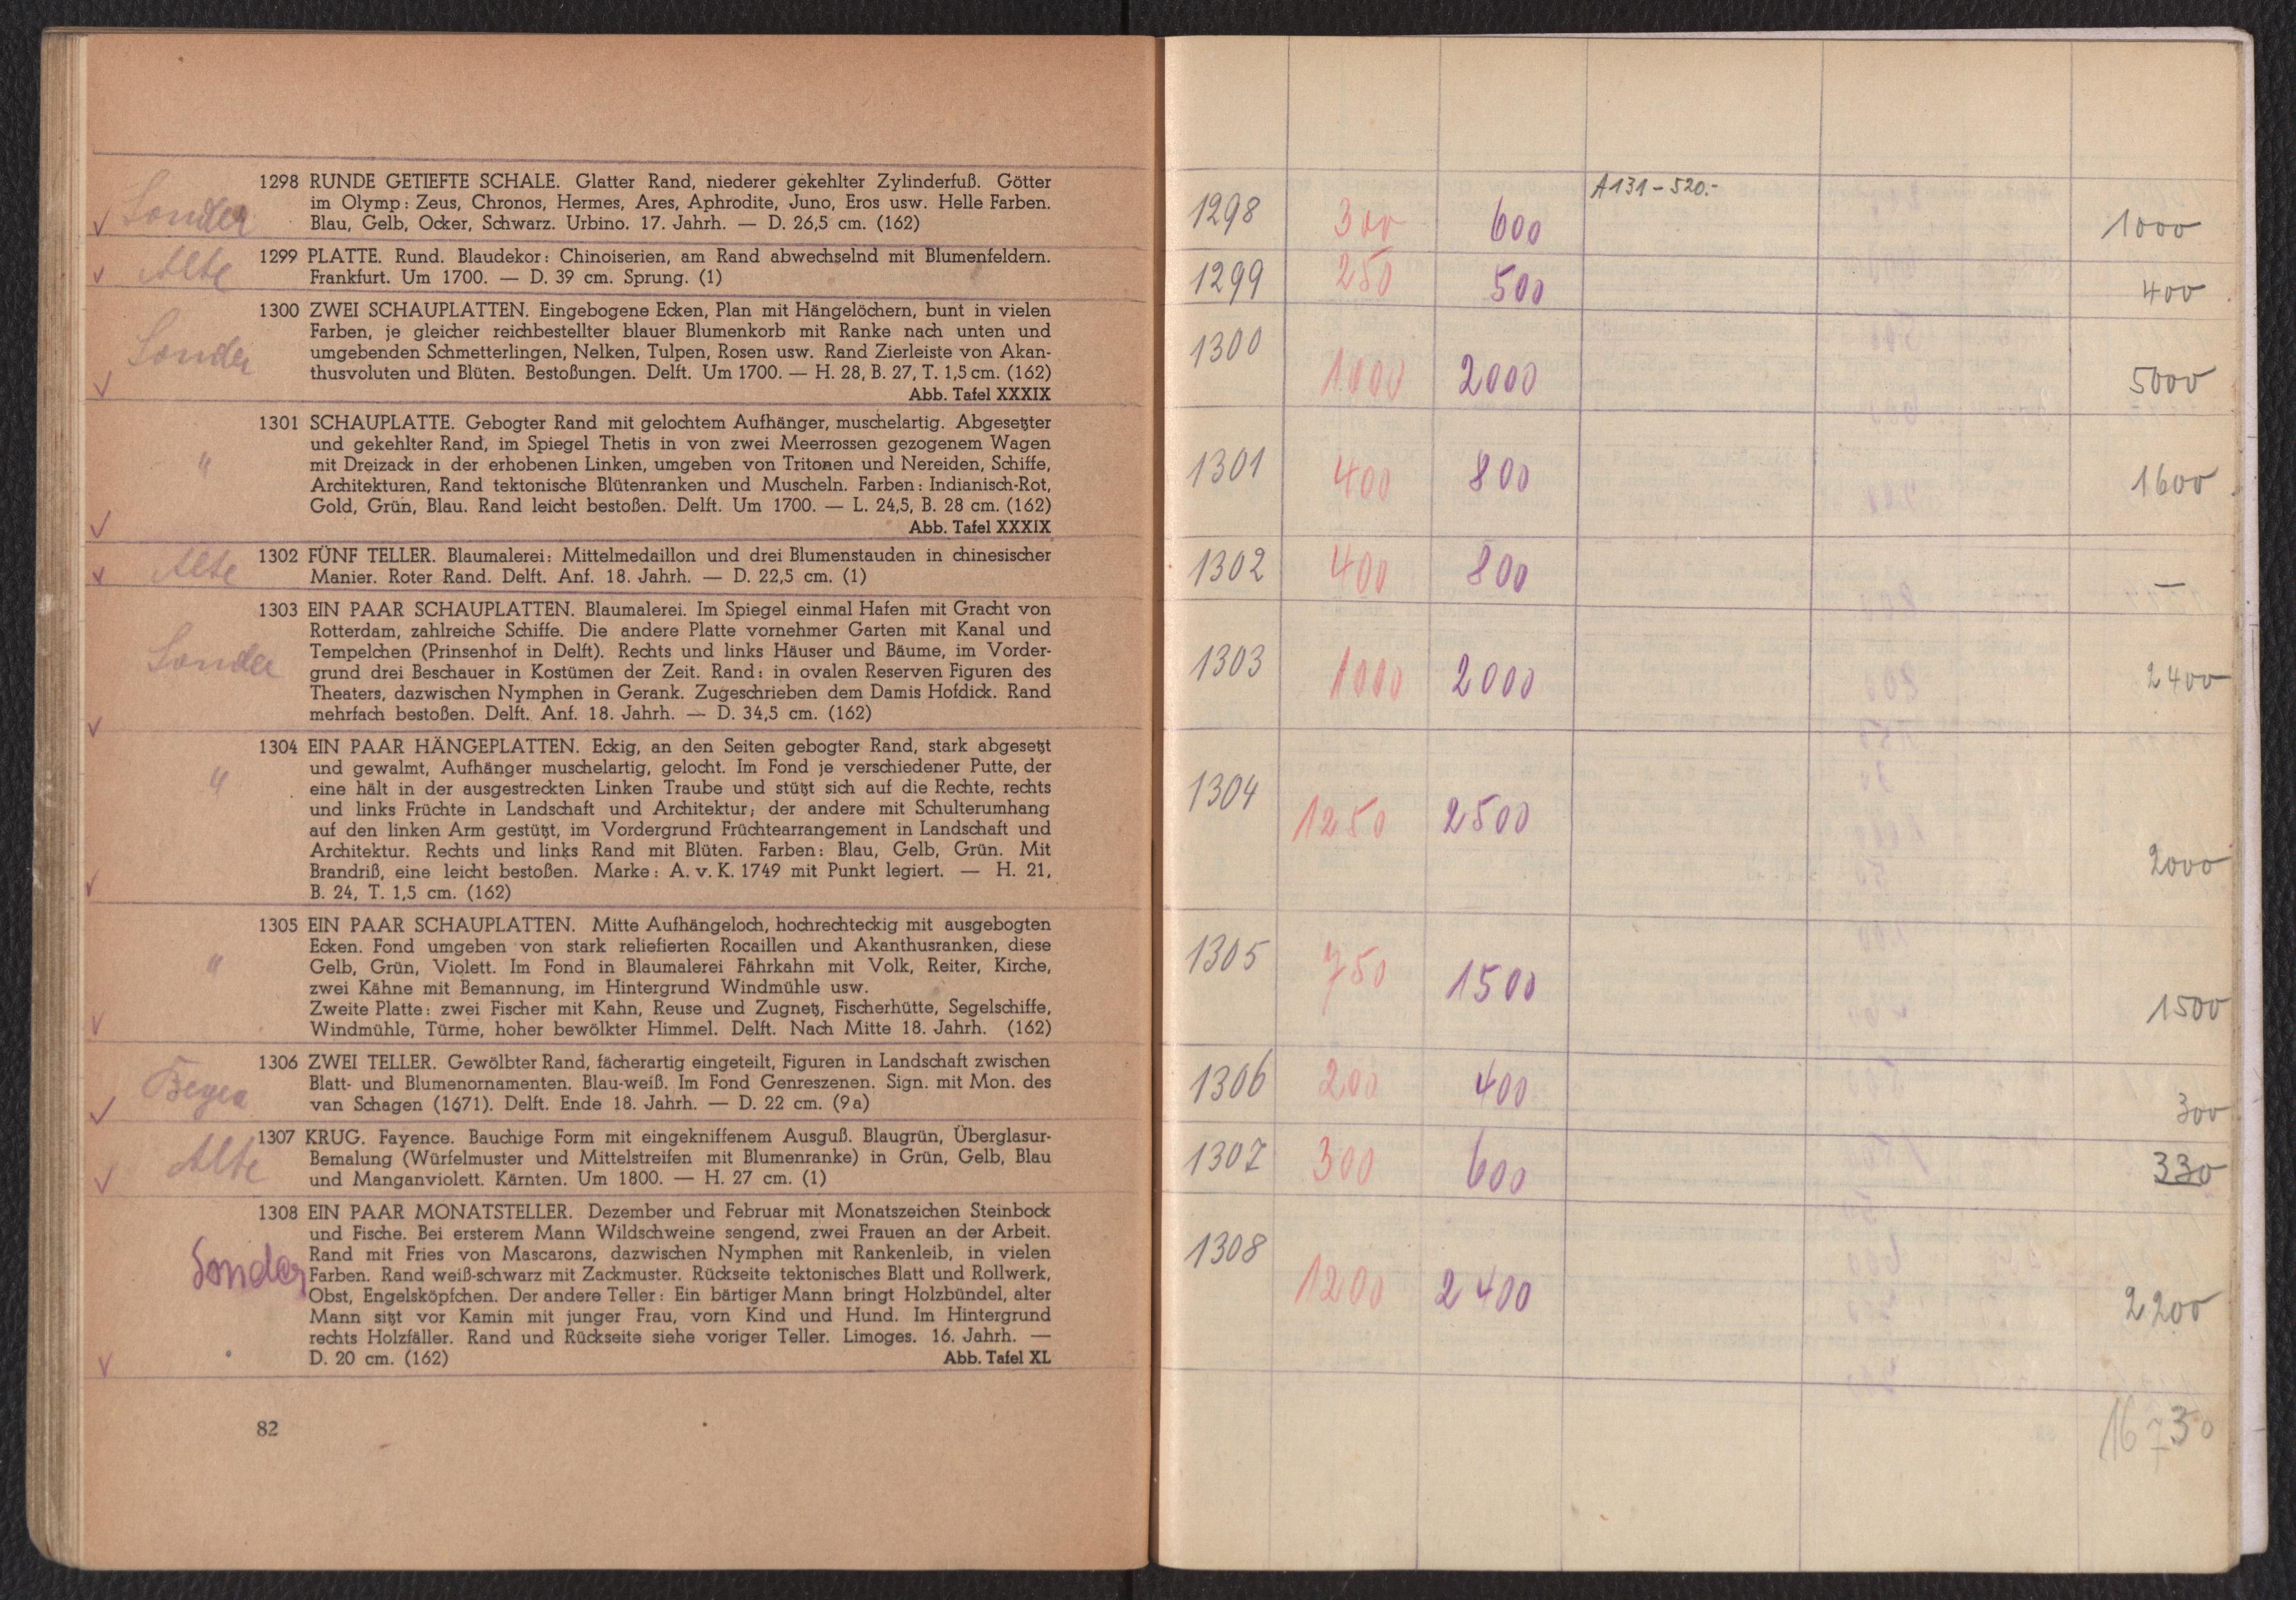 1298 RUNDE GETIEFTE SCHALE. Glatter Rand, niederer gekehlter Zylinderfuß. Götter
im Olymp: Zeus, Chronos, Hermes, Ares, Aphrodite, Juno, Eros usw. Helle Farben.
Sonder Blau, Gelb, Ocker, Schwarz. Urbino. 17. Jahrh. — D. 26,5 cm. (162)
1299 PLATTE. Rund. Blaudekor: Chinoiserien, am Rand abwechselnd mit Blumenfeldern.
Albe Frankfurt. Um 1700. — D. 39 cm. Sprung. (1)
1300 ZWEI SCHAUPLATTEN. Eingebogene Ecken, Plan mit Hängelöchern, bunt in vielen
Farben, je gleicher reichbestellter blauer Blumenkorb mit Ranke nach unten und
Sonder umgebenden Schmetterlingen, Nelken, Tulpen, Rosen usw. Rand Zierleiste von Akan-
thusvoluten und Blüten. Bestoßungen. Delft. Um 1700. — H. 28, B. 27, T. 1,5 cm. (162)
Abb. Tafel XXXIX
1301 SCHAUPLATTE. Gebogter Rand mit gelochtem Aufhänger, muschelartig. Abgesetzter
und gekehlter Rand, im Spiegel Thetis in von zwei Meerrossen gezogenem Wagen
" mit Dreizack in der erhobenen Linken, umgeben von Tritonen und Nereiden, Schiffe,
Architekturen, Rand tektonische Blütenranken und Muscheln. Farben: Indianisch-Rot,
Gold, Grün, Blau. Rand leicht bestoßen. Delft. Um 1700. — L. 24,5, B. 28 cm. (162)
Abb. Tafel XXXIX
1302 FÜNF TELLER. Blaumalerei: Mittelmedaillon und drei Blumenstauden in chinesischer
Albe Manier. Roter Rand. Delft. Anf. 18. Jahrh. — D. 22,5 cm. (1)
1303 EIN PAAR SCHAUPLATTEN. Blaumalerei. Im Spiegel einmal Hafen mit Gracht von
Rotterdam, zahlreiche Schiffe. Die andere Platte vornehmer Garten mit Kanal und
Sonder Tempelchen (Prinsenhof in Delft). Rechts und links Häuser und Bäume, im Vorder-
grund drei Beschauer in Kostümen der Zeit. Rand: in ovalen Reserven Figuren des
Theaters, dazwischen Nymphen in Gerank. Zugeschrieben dem Damis Hofdick. Rand
mehrfach bestoßen. Delft. Anf. 18. Jahrh. — D. 34,5 cm. (162)
1304 EIN PAAR HÄNGEPLATTEN. Eckig, an den Seiten gebogter Rand, stark abgesetzt
und gewalmt, Aufhänger muschelartig, gelocht. Im Fond je verschiedener Putte, der
" eine hält in der ausgestreckten Linken Traube und stützt sich auf die Rechte, rechts
und links Früchte in Landschaft und Architektur; der andere mit Schulterumhang
auf den linken Arm gestützt, im Vordergrund Früchtearrangement in Landschaft und
Architektur. Rechts und links Rand mit Blüten. Farben: Blau, Gelb, Grün. Mit
Brandriß, eine leicht bestoßen. Marke: A. v. K. 1749 mit Punkt legiert. — H. 21,
B. 24, T. 1,5 cm. (162)
1305 EIN PAAR SCHAUPLATTEN. Mitte Aufhängeloch, hochrechteckig mit ausgebogten
Ecken. Fond umgeben von stark reliefierten Rocaillen und Akanthusranken, diese
" Gelb, Grün, Violett. Im Fond in Blaumalerei Fährkahn mit Volk, Reiter, Kirche,
zwei Kähne mit Bemannung, im Hintergrund Windmühle usw.
Zweite Platte: zwei Fischer mit Kahn, Reuse und Zugnetz, Fischerhütte, Segelschiffe,
Windmühle, Türme, hoher bewölkter Himmel. Delft. Nach Mitte 18. Jahrh. (162)
1306 ZWEI TELLER. Gewölbter Rand, fächerartig eingeteilt, Figuren in Landschaft zwischen
Blatt- und Blumenornamenten. Blau-weiß. Im Fond Genreszenen. Sign. mit Mon. des
van Schagen (1671). Delft. Ende 18. Jahrh. — D. 22 cm. (9a)
1307 KRUG. Fayence. Bauchige Form mit eingekniffenem Ausguß. Blaugrün, Überglasur-
Albe Bemalung (Würfelmuster und Mittelstreifen mit Blumenranke) in Grün, Gelb, Blau
und Manganviolett. Kärnten. Um 1800. — H. 27 cm. (1)
1308 EIN PAAR MONATSTELLER. Dezember und Februar mit Monatszeichen Steinbock
und Fische. Bei ersterem Mann Wildschweine sengend, zwei Frauen an der Arbeit.
Rand mit Fries von Mascarons, dazwischen Nymphen mit Rankenleib, in vielen
Sonder Farben. Rand weiß-schwarz mit Zackmuster. Rückseite tektonisches Blatt und Rollwerk,
Obst, Engelsköpfchen. Der andere Teller: Ein bärtiger Mann bringt Holzbündel, alter
Mann sitzt vor Kamin mit junger Frau, vorn Kind und Hund. Im Hintergrund
rechts Holzfäller. Rand und Rückseite siehe voriger Teller. Limoges. 16. Jahrh. —
D. 20 cm. (162) Abb. Tafel XL
82
A131-520.-
1298 300 600 1000
1299 250 500 400
1300 1000 2000 5000
1301 400 800 1600
1302 400 800 —
1303 1000 2000 2400
1304 1250 2500 2000
1305 750 1500 1500
1306 200 400 300
1307 300 600 330
1308 1200 2400 2200
16730